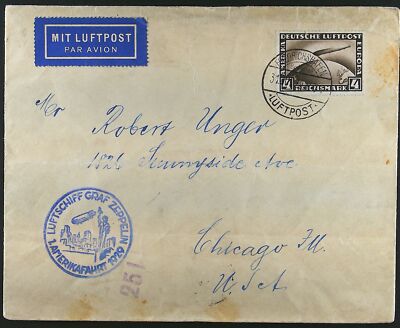 MIT LUFTPOST
PAR AVION
DEUTSCHE LUFTPOST
AMERIKA
EUROPA
4 REICHSMARK 4
FRIEDRICHSHAFEN
LUFTPOST
Mr Robert Unger
1826 Sunnyside Ave
Chicago Ill.
USA
LUFTSCHIFF GRAF ZEPPELIN
1. AMERIKAFAHRT 1929
251